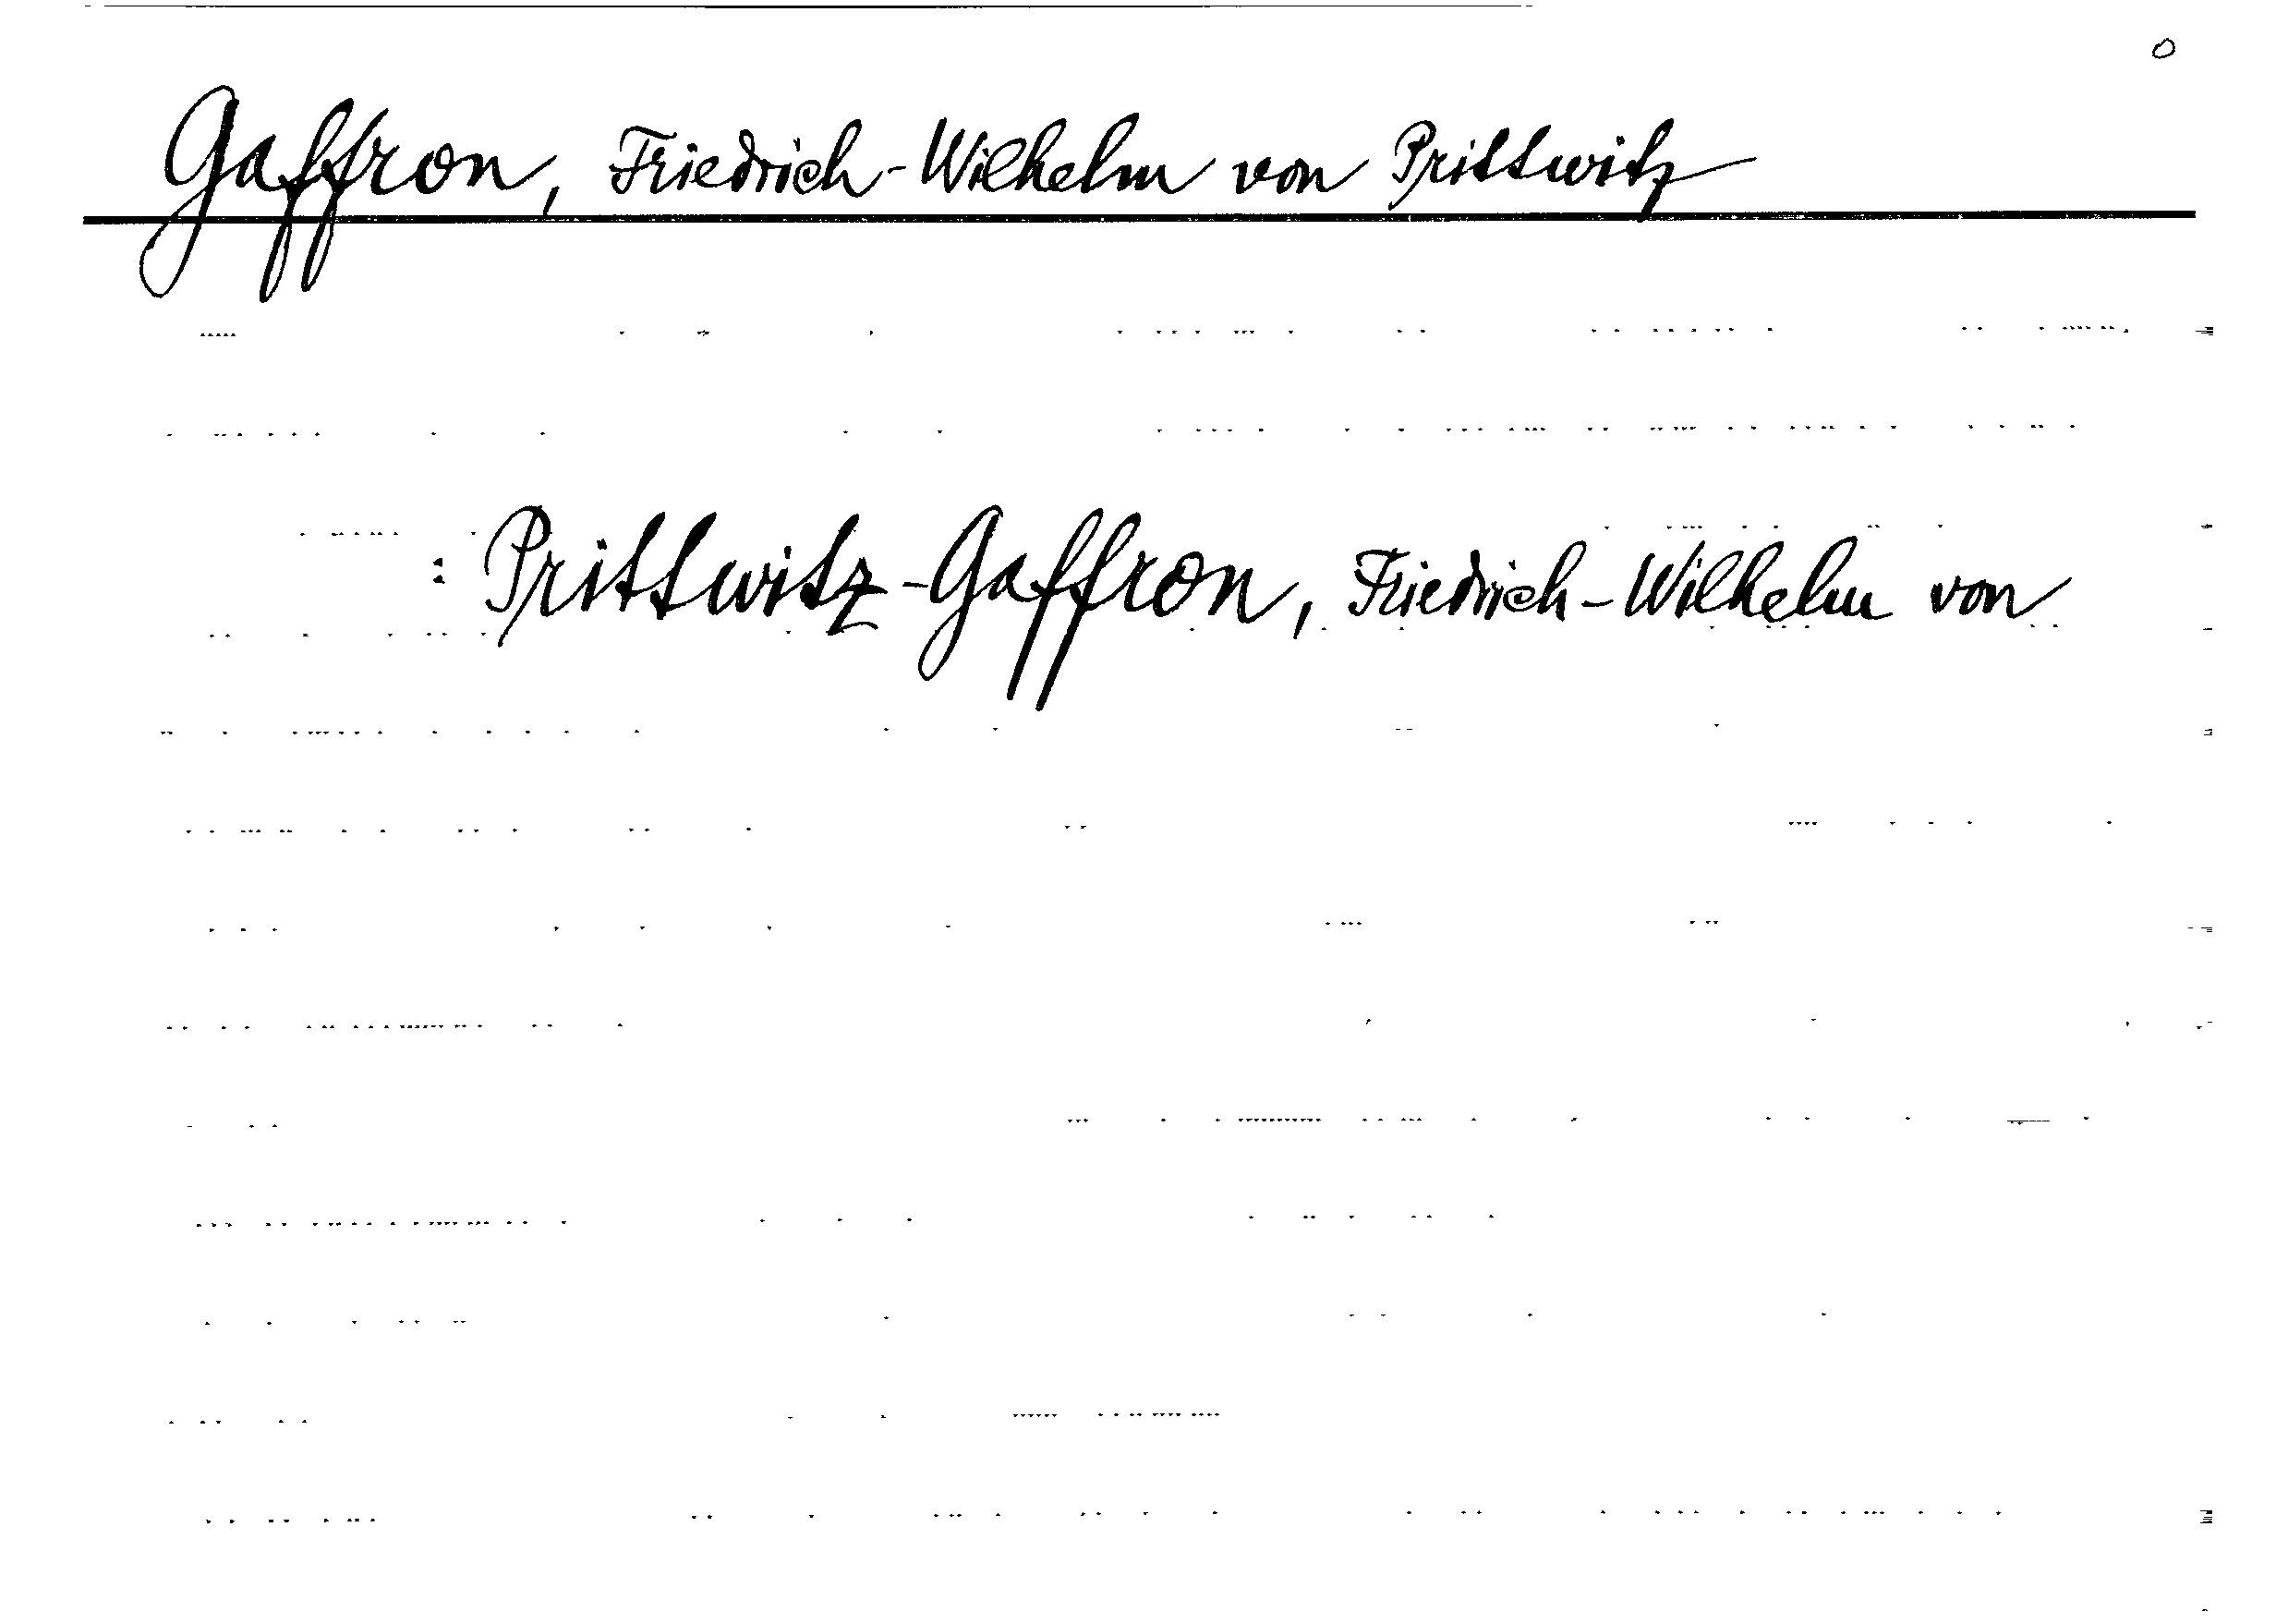 Gaffron, Friedrich-Wilhelm von Prittwitz
: Prittwitz-Gaffron, Friedrich-Wilhelm von